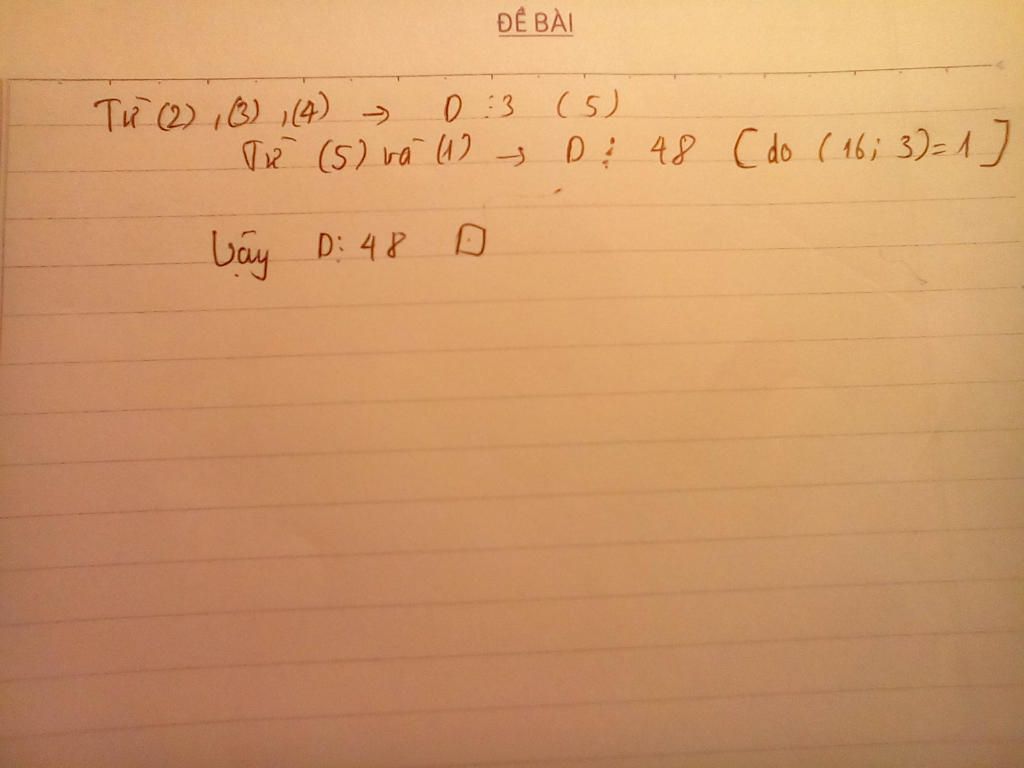 ĐỀ BÀI
Từ (2), (3), (4) → D ⋮ 3 (5)
Từ (5) và (1) → D ⋮ 48 [do (16; 3) = 1]
Vậy D ⋮ 48 □